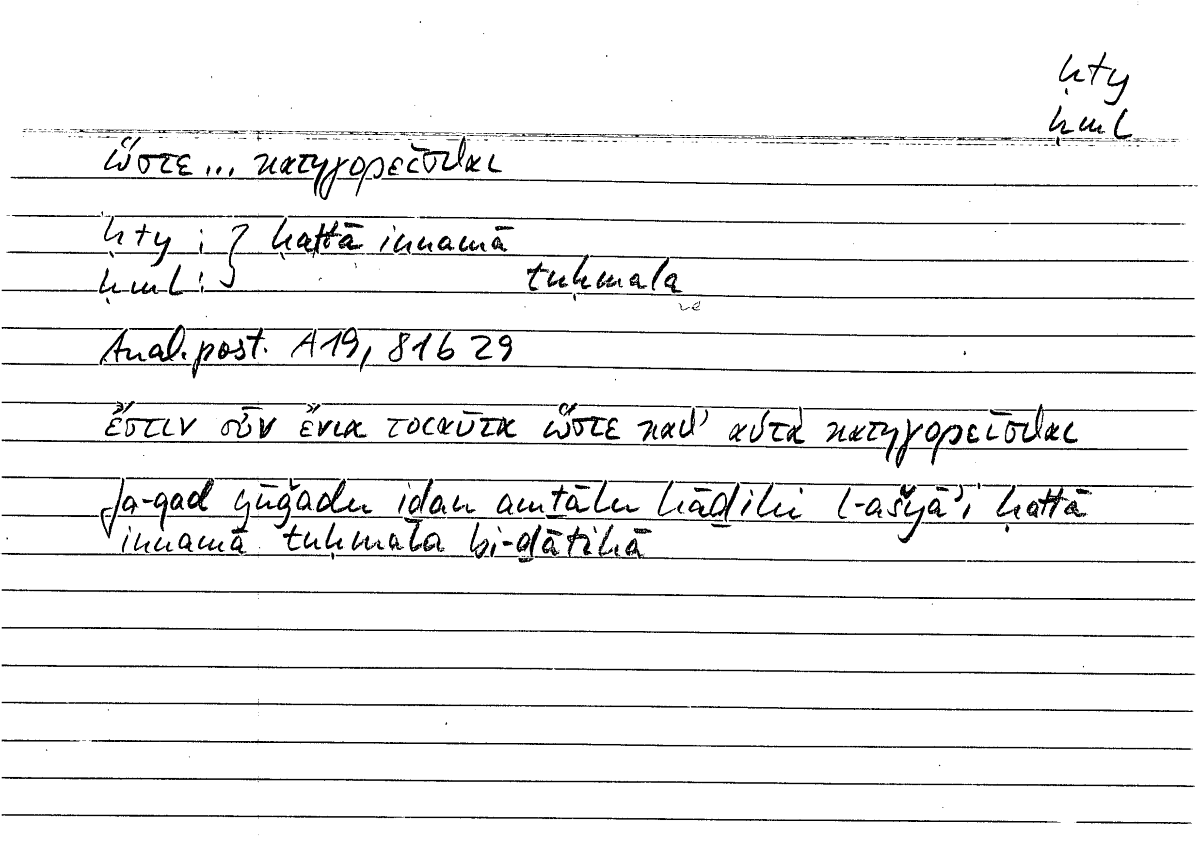 ḥty
ḥml
ὥστε ... κατηγορεῖσθαι
ḥty : } ḥattā innamā
ḥml : tuḥmala
Anal. post. A19, 81b29
ἔστιν οὖν ἔνια τοιαῦτα ὥστε καθ' αὑτὰ κατηγορεῖσθαι
fa-qad yūǧadu iḏan amṯālu hāḏihi l-ašyā'i ḥattā
innamā tuḥmala bi-ḏātihā